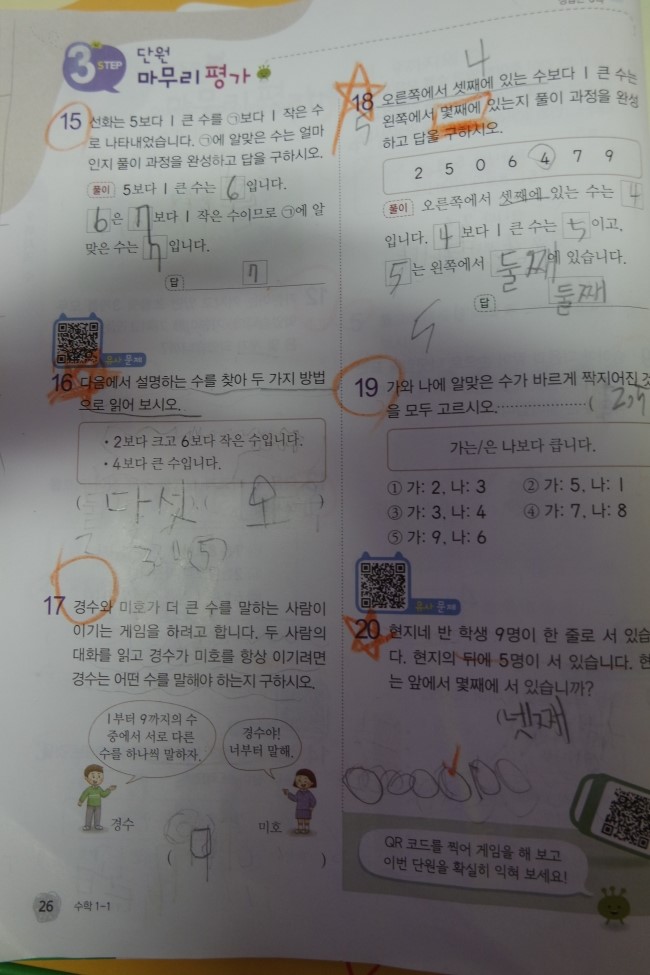 3 STEP
단원
마무리 평가
15 선화는 5보다 1 큰 수를 ㉠보다 1 작은 수
로 나타내었습니다. ㉠에 알맞은 수는 얼마
인지 풀이 과정을 완성하고 답을 구하시오.
풀이 5보다 1 큰 수는 6 입니다.
6 은 7 보다 1 작은 수이므로 ㉠에 알
맞은 수는 7 입니다.
답 7
유사 문제
16 다음에서 설명하는 수를 찾아 두 가지 방법
으로 읽어 보시오.
• 2보다 크고 6보다 작은 수입니다.
• 4보다 큰 수입니다.
( 다섯, 오 )
3 4 5
17 경수와 미호가 더 큰 수를 말하는 사람이
이기는 게임을 하려고 합니다. 두 사람의
대화를 읽고 경수가 미호를 항상 이기려면
경수는 어떤 수를 말해야 하는지 구하시오.
1부터 9까지의 수
중에서 서로 다른
수를 하나씩 말하자.
경수야!
너부터 말해.
경수
미호
( 9 )
26 수학 1-1
4
18 오른쪽에서 셋째에 있는 수보다 1 큰 수는
왼쪽에서 몇째에 있는지 풀이 과정을 완성
하고 답을 구하시오.
5
2 5 0 6 4 7 9
풀이 오른쪽에서 셋째에 있는 수는 4
입니다. 4 보다 1 큰 수는 5 이고,
5 는 왼쪽에서 둘째 에 있습니다.
답 둘째
5
19 가와 나에 알맞은 수가 바르게 짝지어진 것
을 모두 고르시오. (
가는/은 나보다 큽니다.
① 가: 2, 나: 3 ② 가: 5, 나: 1
③ 가: 3, 나: 4 ④ 가: 7, 나: 8
⑤ 가: 9, 나: 6
유사 문제
20 현지네 반 학생 9명이 한 줄로 서 있습
다. 현지의 뒤에 5명이 서 있습니다. 현
는 앞에서 몇째에 서 있습니까?
( 넷째
QR 코드를 찍어 게임을 해 보고
이번 단원을 확실히 익혀 보세요!